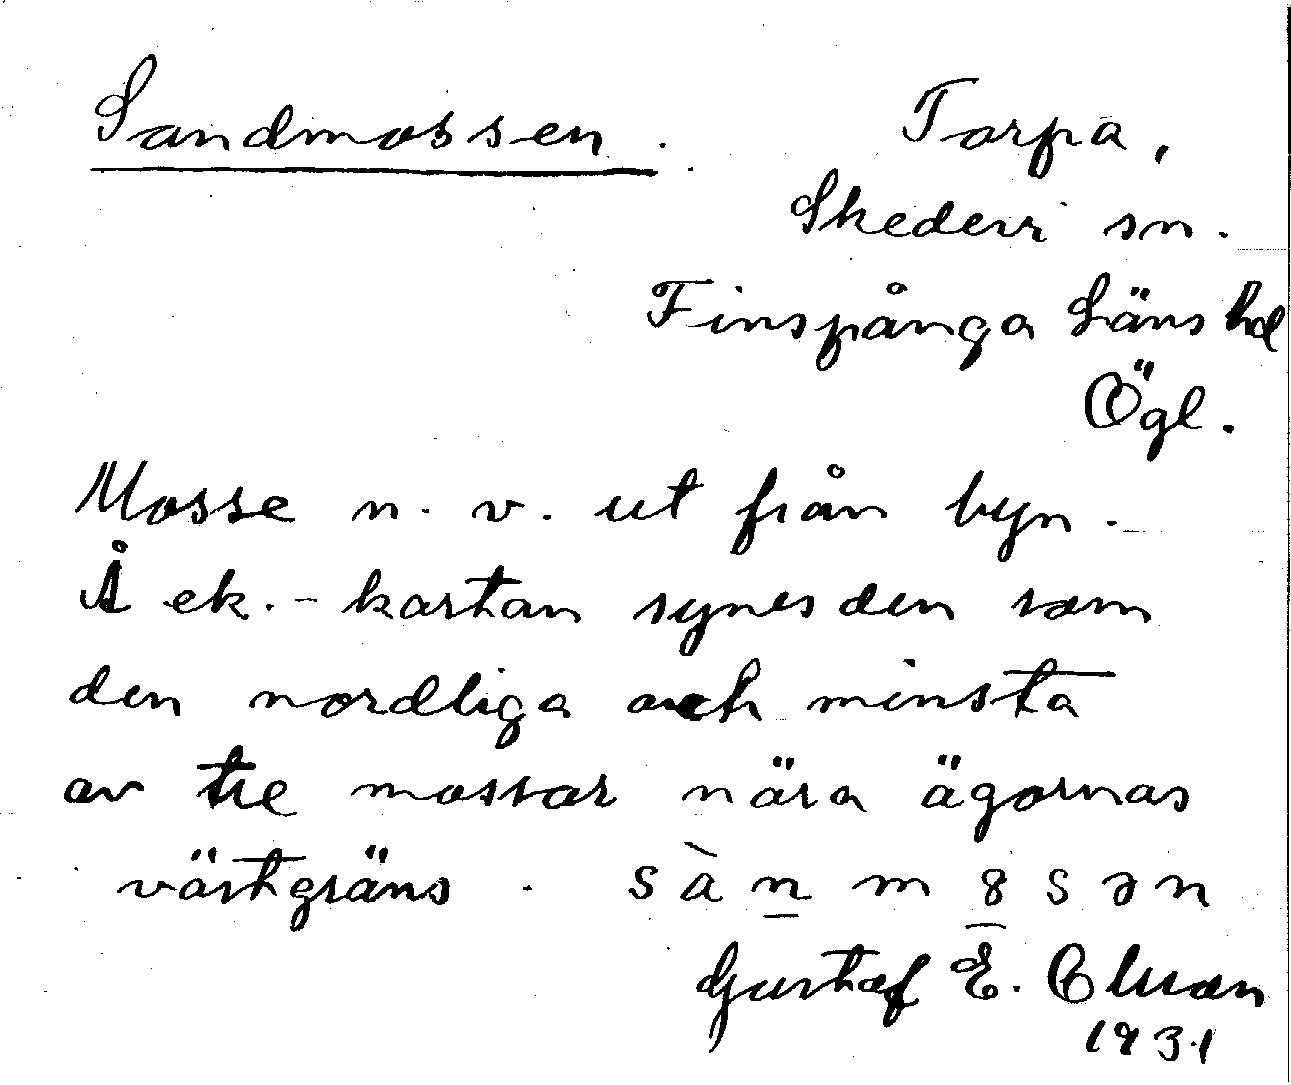 Sandmossen. Torpa,
Skedevi sn.
Finspånga Läns hd
Ögl.
Mosse n. v. ut från byn.
Å ek.-kartan synes den som
den nordliga och minsta
av tre mossar nära ägornas
västgräns. sàn̲m8̲sən
Gustaf E.
1931